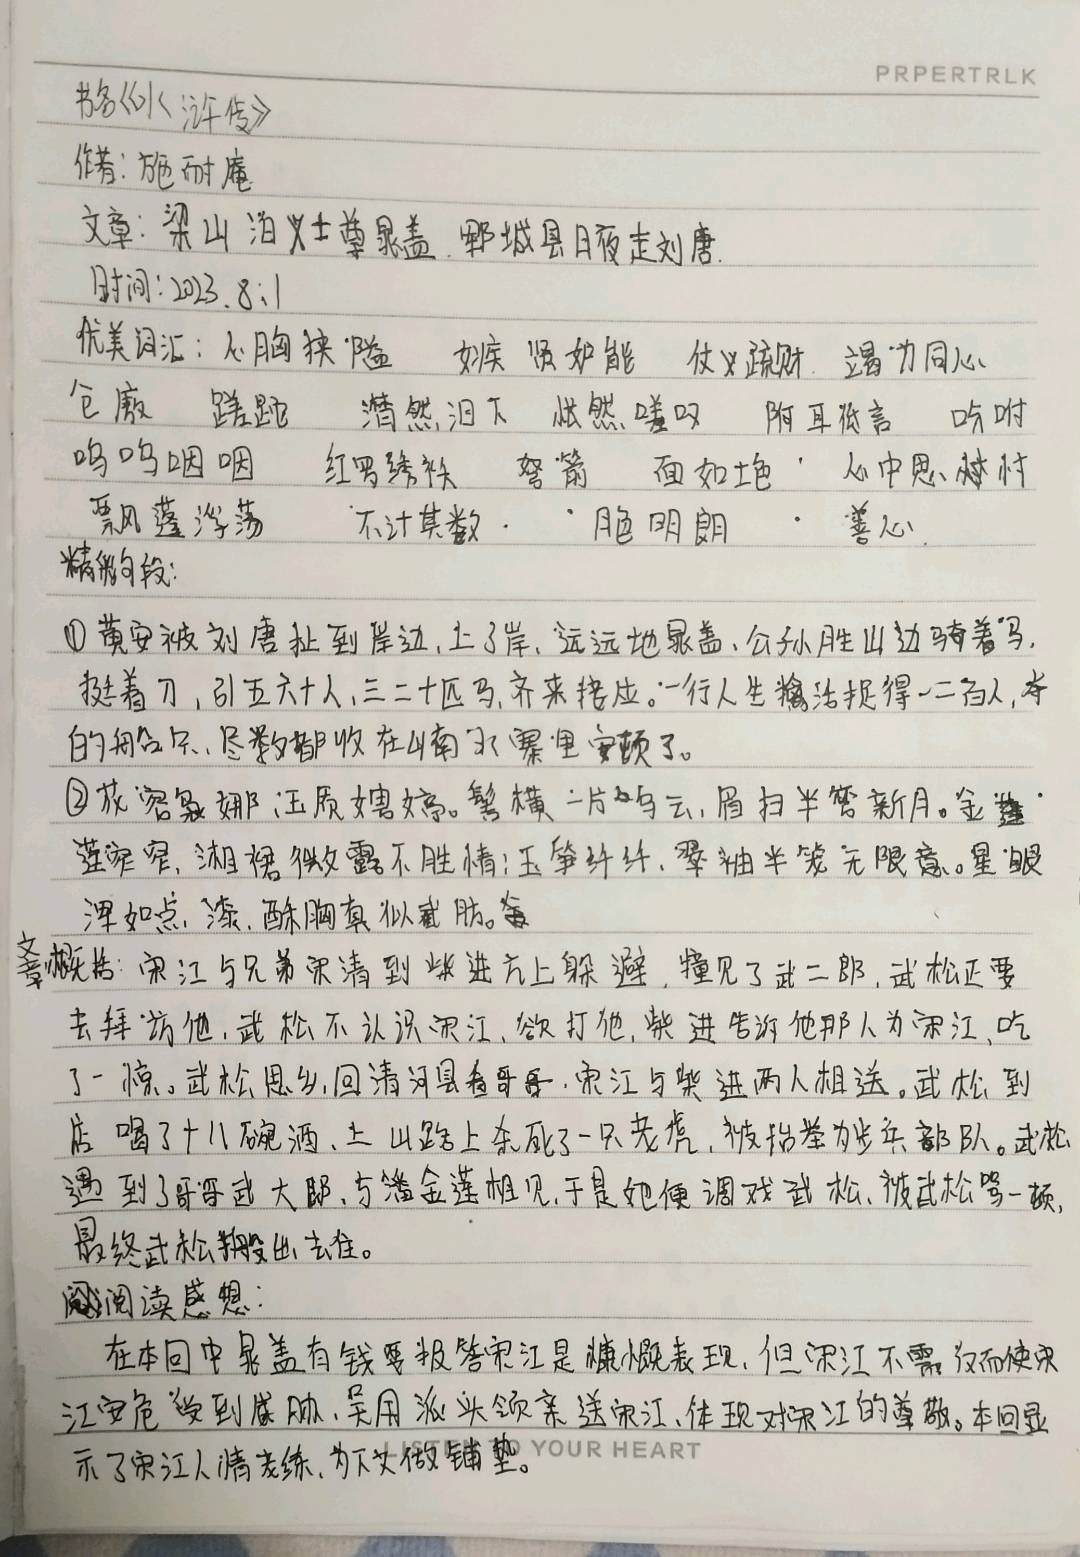 PRPERTRLK
书名《水浒传》
作者:施耐庵
文章:梁山泊义士尊晁盖.郓城县月夜走刘唐.
时间:2023.8.1
优美词汇:心胸狭隘 嫉贤妒能 仗义疏财 竭力同心
仓廒 蹉跎 潸然泪下 怅然嗟叹 附耳低言 吩咐
呜呜咽咽 红罗绣袄 弩箭 面如土色 心中思忖
飘风蓬浮荡 不计其数 月色明朗 善心
精彩句段:
①黄安被刘唐扯到岸边,上了岸,远远地晁盖、公孙胜山边骑着马,
挺着刀,引五六十人,三二十匹马,齐来接应。一行人生擒活捉得一二百人,夺
的船只、尽数都收在山南水寨里安顿了。
②花容袅娜,玉质娉婷。髻横一片乌云,眉扫半弯新月。金莲
窄窄,湘裙微露不胜情;玉笋纤纤,翠袖半笼无限意。星眼
浑如点漆,酥胸真似截肪。
文章概括:宋江与兄弟宋清到柴进庄上躲避,撞见了武二郎,武松正要
去拜访他,武松不认识宋江,欲打他,柴进告诉他那人为宋江,吃
了一惊。武松思乡,回清河县看哥哥.宋江与柴进两人相送。武松到
店喝了十八碗酒、上山路上杀死了一只老虎,被抬举为步兵都队。武松
遇到了哥哥武大郎,与潘金莲相见,于是她便调戏武松,被武松骂一顿,
最终武松搬出去住。
阅读感想:
在本回中晁盖有钱要报答宋江是慷慨表现,但宋江不需,反而使宋
江安危受到威胁,吴用派头领亲送宋江,体现对宋江的尊敬。本回显
示了宋江人情老练,为下文做铺垫。
LISTEN TO YOUR HEART